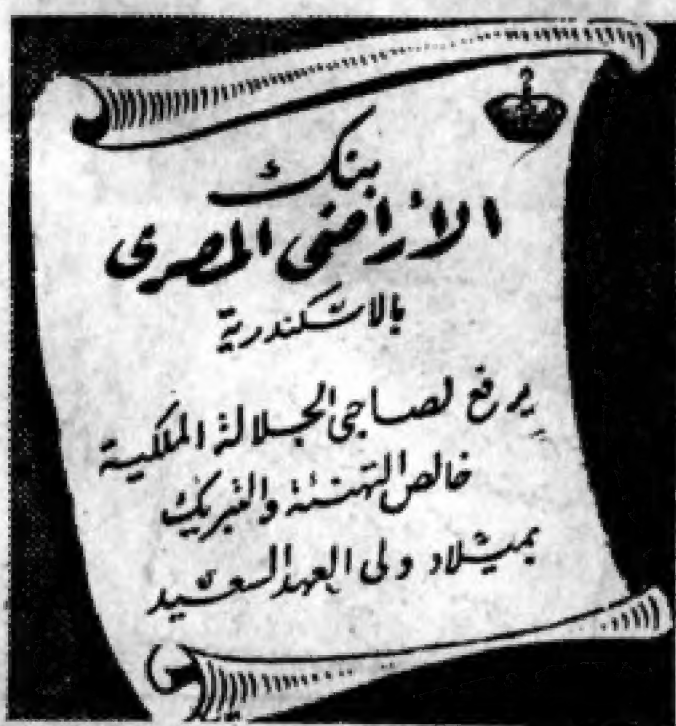 بنك
الأراضى المصرى
بالاسكندرية
يرفع لصاحبى الجلالة الملكية
خالص التهنئة والتبريك
بميلاد ولى العهد السعيد